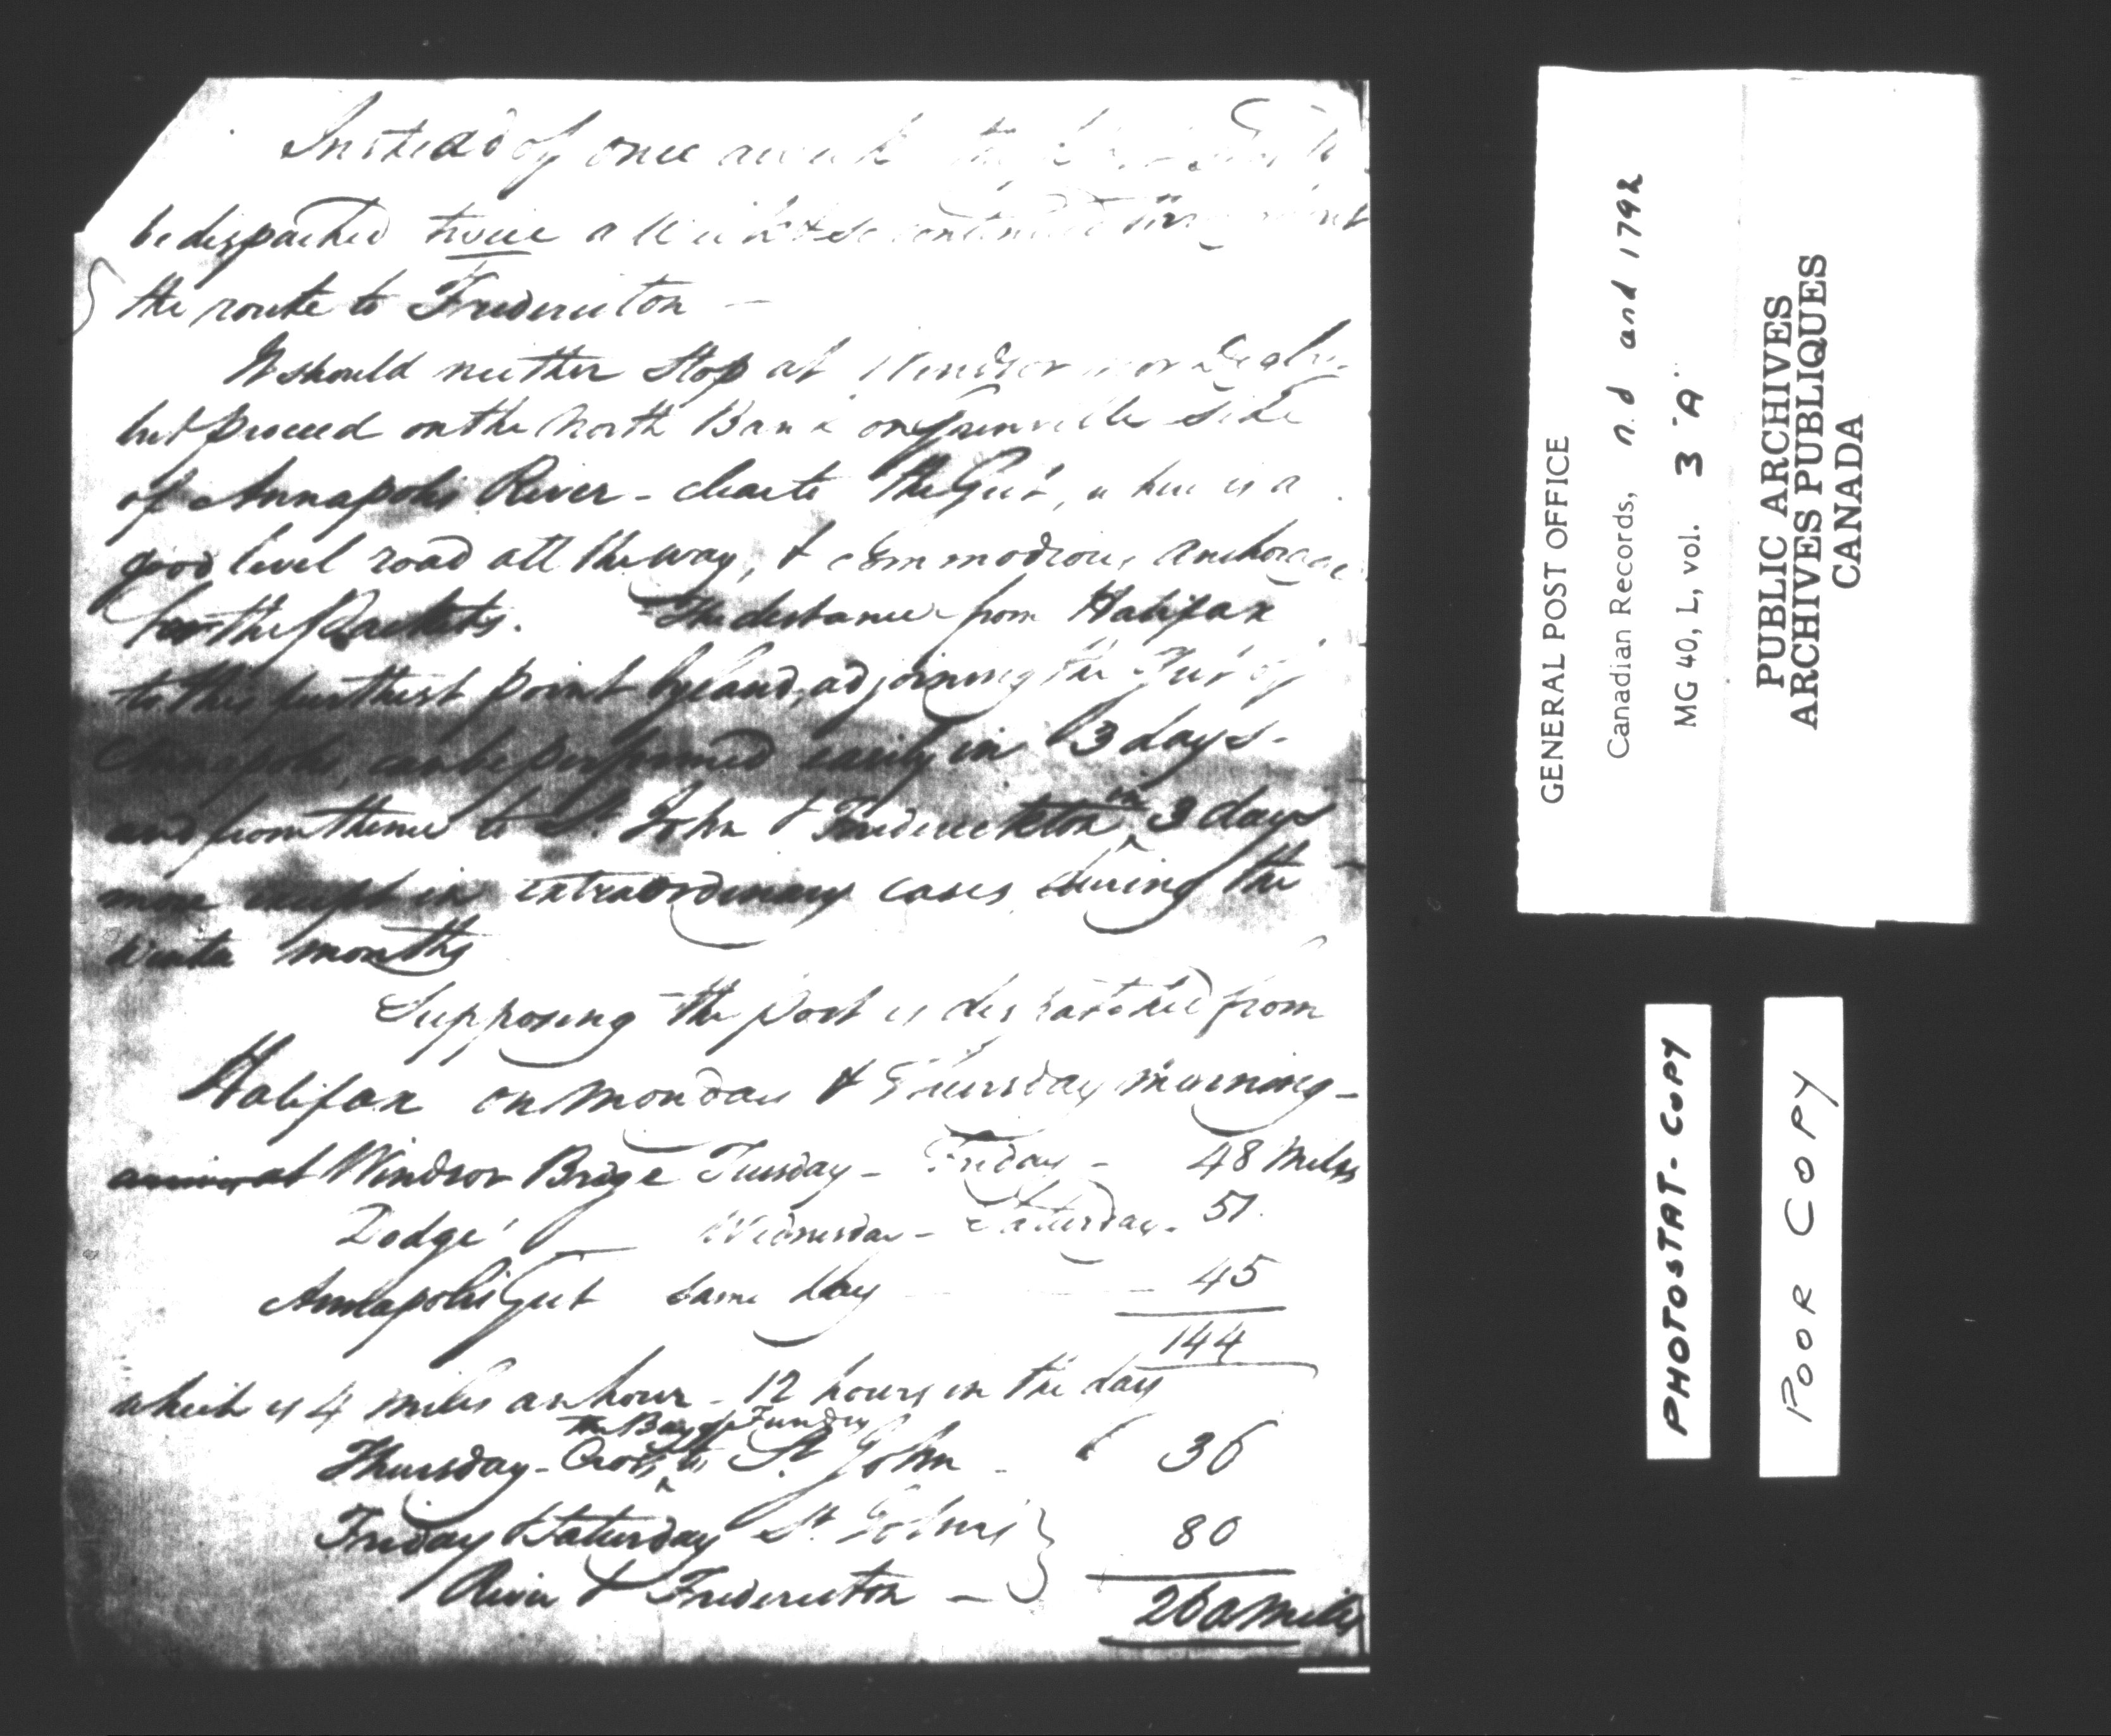 Instead of once a week the
be dispatched twice a Week & so continued
the route to Fredericton —
It should neither Stop at Windsor nor Digby -
but proceed on the North Bank or Granville Side
of Annapolis River - clear to the Gut, where is a
good level road all the way, & commodious anchorage
for the Packets. The distance from Halifax
to this furthest point by land, adjoining the Gut of
Annapolis, can be performed easily in 3 days -
and from thence to St. John & Frederickton in 3 days
more except in extraordinary cases during the
Winter months
Supposing the post is dispatched from
Halifax on Monday & Thursday morning -
at Windsor Brige Tuesday - Friday - 48 Miles
Dodge' Wednesday - Saturday - 51.
Annapolis Gut same day 45
144
which is 4 miles an hour - 12 hours in the day
Thursday - Cross the Bay of Fundy to St John - 36
Friday & Saturday St. Johns } 80
River & Fredericton —
260 Miles
GENERAL POST OFFICE
Canadian Records, n.d and 1792
MG 40, L, vol. 3 "A"
PUBLIC ARCHIVES
ARCHIVES PUBLIQUES
CANADA
PHOTOSTAT-COPY
POOR COPY